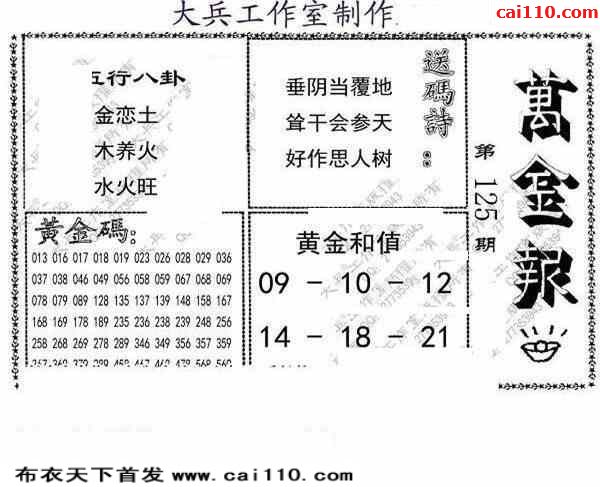 大兵工作室制作
cai110.com
五行八卦
金恋土
木养火
水火旺
垂阴当覆地
耸干会参天
好作思人树
送碼詩：
萬金报
第125期
黄金碼：
013 016 017 018 019 023 026 028 029 036
037 038 046 049 056 058 059 067 068 069
078 079 089 128 135 137 139 148 158 167
168 169 178 189 235 236 238 239 248 256
258 268 269 278 289 346 349 356 357 359
黄金和值
09 － 10 － 12
14 － 18 － 21
布衣天下首发 www.cai110.com